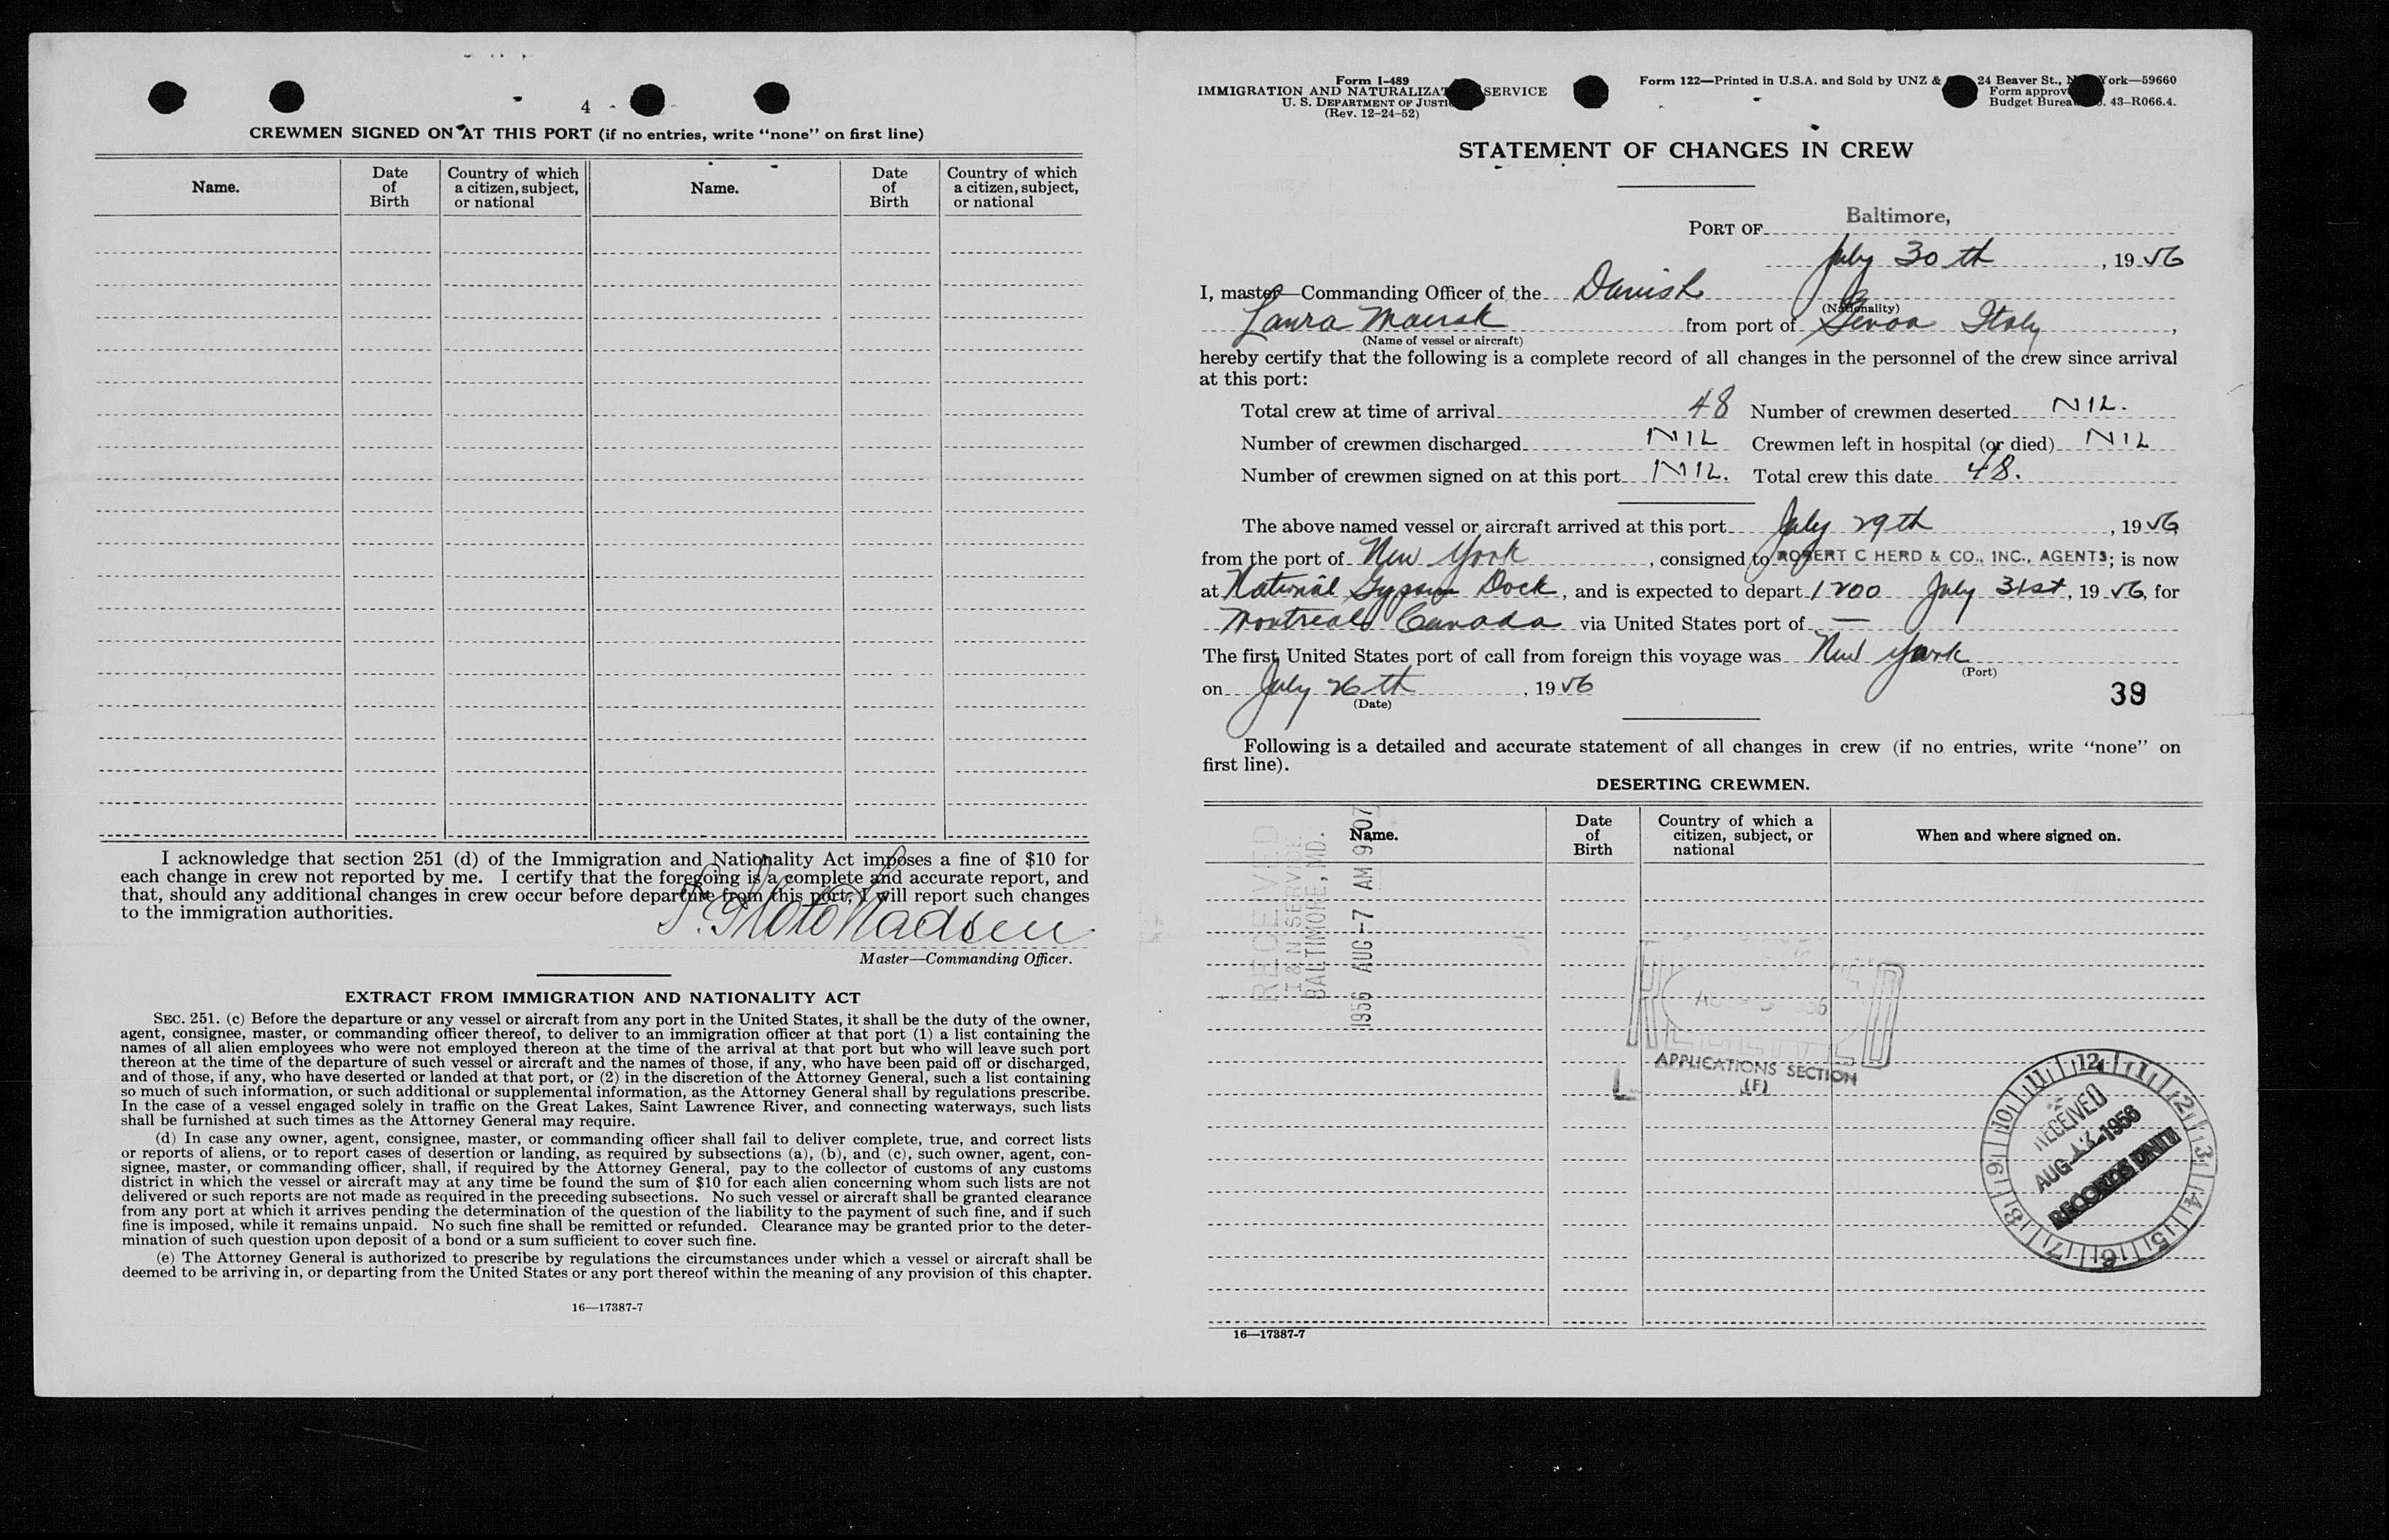 4
CREWMEN SIGNED ON AT THIS PORT (if no entries, write "none" on first line)
Name.
Date of Birth
Country of which a citizen, subject, or national
Name.
Date of Birth
Country of which a citizen, subject, or national
I acknowledge that section 251 (d) of the Immigration and Nationality Act imposes a fine of $10 for
each change in crew not reported by me. I certify that the foregoing is a complete and accurate report, and
that, should any additional changes in crew occur before departure from this port, I will report such changes
to the immigration authorities.
Master—Commanding Officer.
EXTRACT FROM IMMIGRATION AND NATIONALITY ACT
SEC. 251. (c) Before the departure or any vessel or aircraft from any port in the United States, it shall be the duty of the owner,
agent, consignee, master, or commanding officer thereof, to deliver to an immigration officer at that port (1) a list containing the
names of all alien employees who were not employed thereon at the time of the arrival at that port but who will leave such port
thereon at the time of the departure of such vessel or aircraft and the names of those, if any, who have been paid off or discharged,
and of those, if any, who have deserted or landed at that port, or (2) in the discretion of the Attorney General, such a list containing
so much of such information, or such additional or supplemental information, as the Attorney General shall by regulations prescribe.
In the case of a vessel engaged solely in traffic on the Great Lakes, Saint Lawrence River, and connecting waterways, such lists
shall be furnished at such times as the Attorney General may require.
(d) In case any owner, agent, consignee, master, or commanding officer shall fail to deliver complete, true, and correct lists
or reports of aliens, or to report cases of desertion or landing, as required by subsections (a), (b), and (c), such owner, agent, con-
signee, master, or commanding officer, shall, if required by the Attorney General, pay to the collector of customs of any customs
district in which the vessel or aircraft may at any time be found the sum of $10 for each alien concerning whom such lists are not
delivered or such reports are not made as required in the preceding subsections. No such vessel or aircraft shall be granted clearance
from any port at which it arrives pending the determination of the question of the liability to the payment of such fine, and if such
fine is imposed, while it remains unpaid. No such fine shall be remitted or refunded. Clearance may be granted prior to the deter-
mination of such question upon deposit of a bond or a sum sufficient to cover such fine.
(e) The Attorney General is authorized to prescribe by regulations the circumstances under which a vessel or aircraft shall be
deemed to be arriving in, or departing from the United States or any port thereof within the meaning of any provision of this chapter.
16—17387-7
Form I-489
IMMIGRATION AND NATURALIZAT SERVICE
U. S. DEPARTMENT OF JUSTI
(Rev. 12-24-52)
Form 122—Printed in U.S.A. and Sold by UNZ & 24 Beaver St., N York—59660
Form approv
Budget Burea . 43-R066.4.
STATEMENT OF CHANGES IN CREW
PORT OF Baltimore,
July 30 th, 1956
I, master—Commanding Officer of the Danish
(Nationality)
Laura Maersk from port of Genoa Italy,
(Name of vessel or aircraft)
hereby certify that the following is a complete record of all changes in the personnel of the crew since arrival
at this port:
Total crew at time of arrival 48 Number of crewmen deserted NIL.
Number of crewmen discharged NIL Crewmen left in hospital (or died) NIL
Number of crewmen signed on at this port NIL. Total crew this date 48.
The above named vessel or aircraft arrived at this port July 29th, 1956
from the port of New York, consigned to ROBERT C HERD & CO., INC., AGENTS; is now
at National Gypsum Dock, and is expected to depart 1200 July 31st, 1956, for
Montreal Canada via United States port of —
The first United States port of call from foreign this voyage was New York
(Port)
on July 26 th, 1956
(Date)
39
Following is a detailed and accurate statement of all changes in crew (if no entries, write "none" on
first line).
DESERTING CREWMEN.
Name.
Date of Birth
Country of which a citizen, subject, or national
When and where signed on.
RECEIVED
I & N SERVICE
BALTIMORE, MD.
1956 AUG -7 AM 9 07
RECEIVED
APPLICATIONS SECTION
(F)
12 1 2 3 4 5 6 7 8 9 10 11
RECEIVED
AUG 1956
RECORDS UNIT
16—17387-7